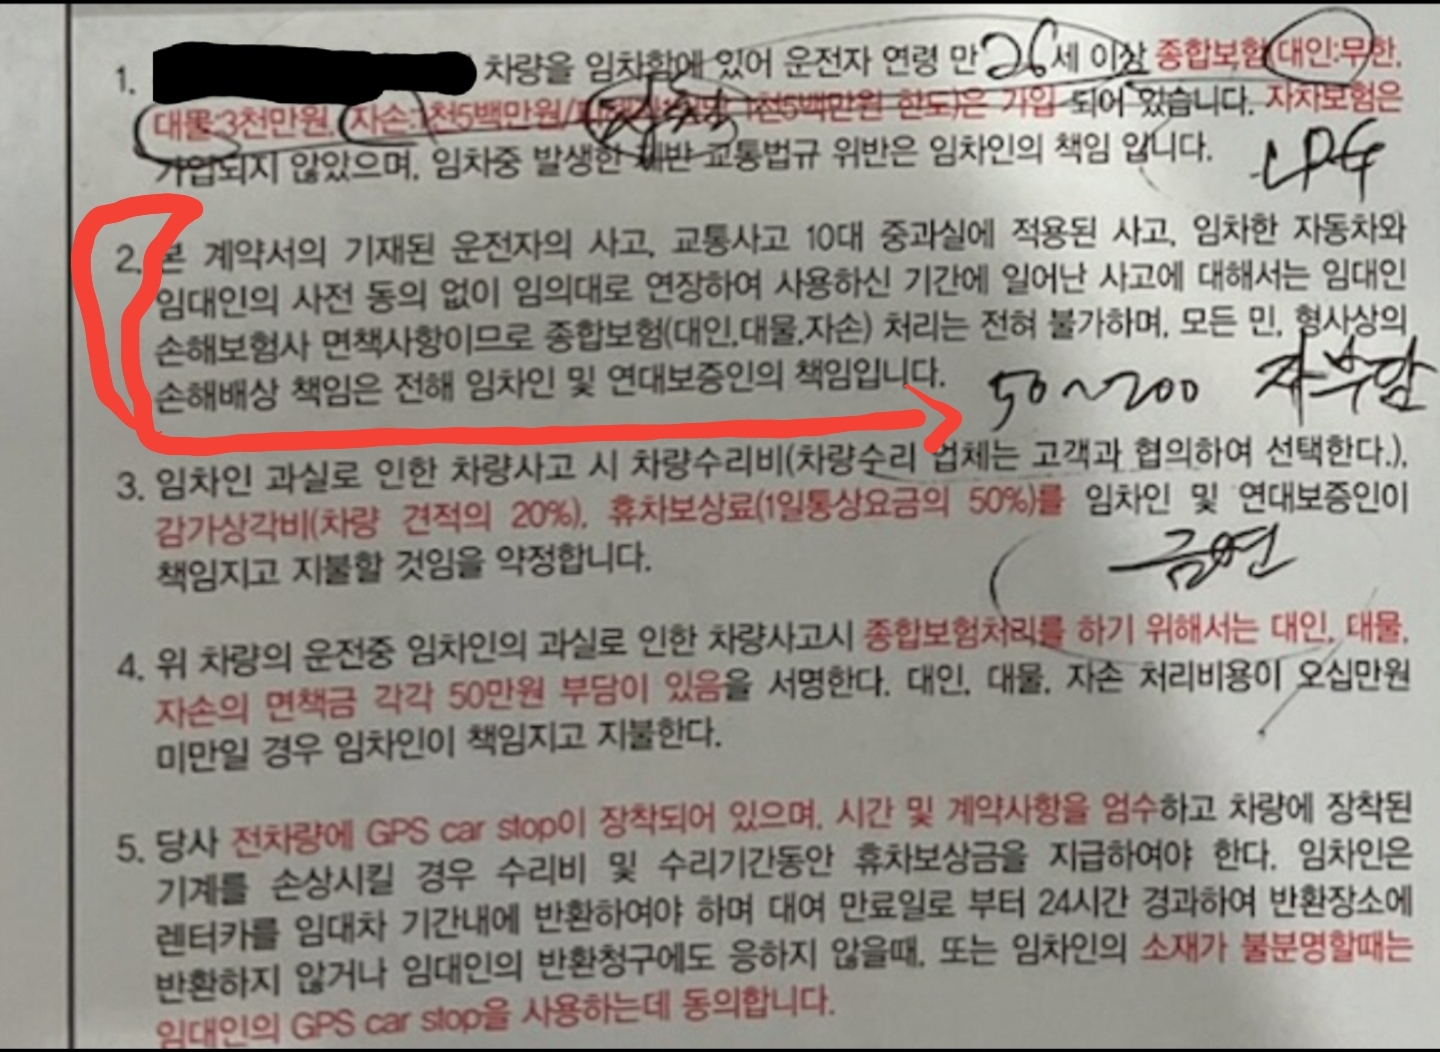 1. 차량을 임차함에 있어 운전자 연령 만 26세 이상 종합보험(대인:무한,
대물:3천만원, 자손:1천5백만원/ 1천5백만원 한도)은 가입 되어 있습니다. 자차보험은
가입되지 않았으며, 임차중 발생한 제반 교통법규 위반은 임차인의 책임 입니다.
LPG
2. 본 계약서의 기재된 운전자의 사고, 교통사고 10대 중과실에 적용된 사고, 임차한 자동차와
임대인의 사전 동의 없이 임의대로 연장하여 사용하신 기간에 일어난 사고에 대해서는 임대인
손해보험사 면책사항이므로 종합보험(대인,대물,자손) 처리는 전혀 불가하며, 모든 민, 형사상의
손해배상 책임은 전해 임차인 및 연대보증인의 책임입니다.
50~200 자부담
3. 임차인 과실로 인한 차량사고 시 차량수리비(차량수리 업체는 고객과 협의하여 선택한다.),
감가상각비(차량 견적의 20%), 휴차보상료(1일통상요금의 50%)를 임차인 및 연대보증인이
책임지고 지불할 것임을 약정합니다.
금연
4. 위 차량의 운전중 임차인의 과실로 인한 차량사고시 종합보험처리를 하기 위해서는 대인, 대물,
자손의 면책금 각각 50만원 부담이 있음을 서명한다. 대인, 대물, 자손 처리비용이 오십만원
미만일 경우 임차인이 책임지고 지불한다.
5. 당사 전차량에 GPS car stop이 장착되어 있으며, 시간 및 계약사항을 엄수하고 차량에 장착된
기계를 손상시킬 경우 수리비 및 수리기간동안 휴차보상금을 지급하여야 한다. 임차인은
렌터카를 임대차 기간내에 반환하여야 하며 대여 만료일로 부터 24시간 경과하여 반환장소에
반환하지 않거나 임대인의 반환청구에도 응하지 않을때, 또는 임차인의 소재가 불분명할때는
임대인의 GPS car stop을 사용하는데 동의합니다.